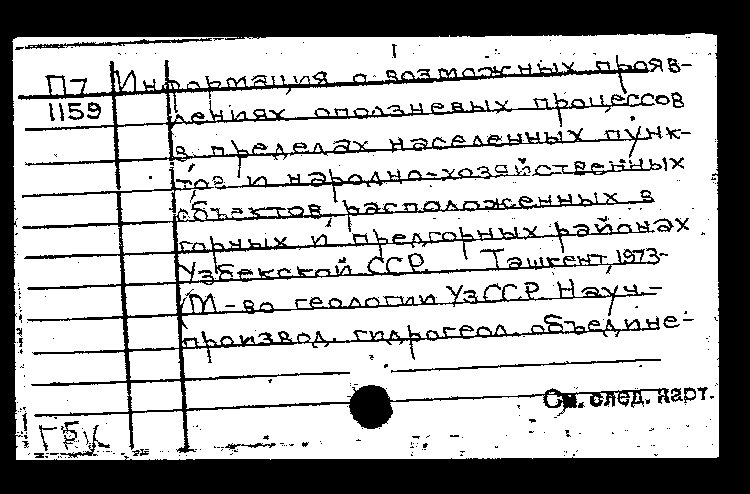 I
П7 Информация о возможных прояв-
1159 лениях оползневых процессов
в пределах населенных пунк-
тов и народно-хозяйственных
объектов, расположенных в
горных и предгорных районах
Узбекской ССР. Ташкент, 1973-
(М-во геологии УзССР. Науч.-
производ. гидрогеол. объедине-
См. след. карт.
ГБК